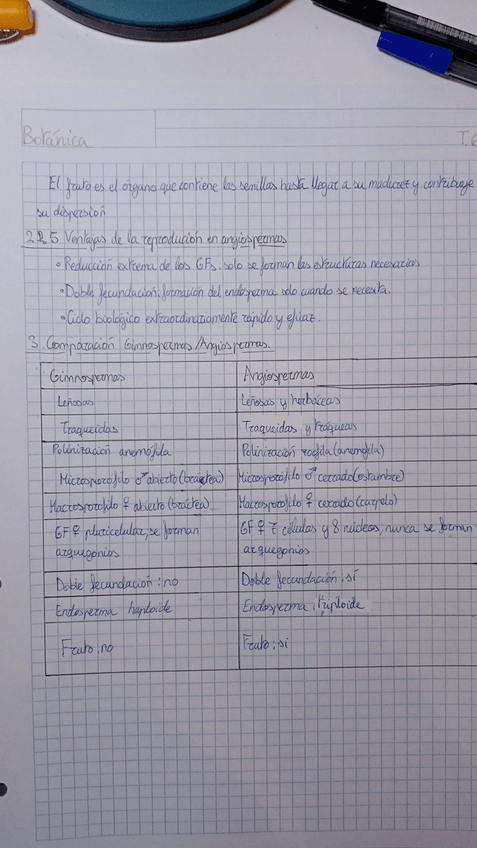 Botánica T.6
El fruto es el órgano que contiene las semillas hasta llegar a su madurez y contribuye
su dispersión
2.2.5. Ventajas de la reproducción en angiospermas
• Reducción extrema de los GFs, solo se forman las estructuras necesarias
• Doble fecundación, formación del endosperma solo cuando se necesita.
• Ciclo biológico extraordinariamente rápido y eficaz.
3. Comparación Gimnospermas/Angiospermas.
Gimnospermas Angiospermas
Leñosas Leñosas y herbáceas
Traqueidas Traqueidas y tráqueas
Polinización anemófila Polinización zoofila (anemofila)
Microsporófilo ♂ abierto (bráctea) Microsporófilo ♂ cerrado (estambre)
Macrosporofilo ♀ abierto (bráctea) Macrosporofilo ♀ cerrado (carpelo)
GF ♀ pluricelular, se forman GF ♀ 7 células y 8 núcleos, nunca se forman
arquegonios arquegonios
Doble fecundación: no Doble fecundación: sí
Endosperma haploide Endosperma: triploide
Fruto: no Fruto: sí